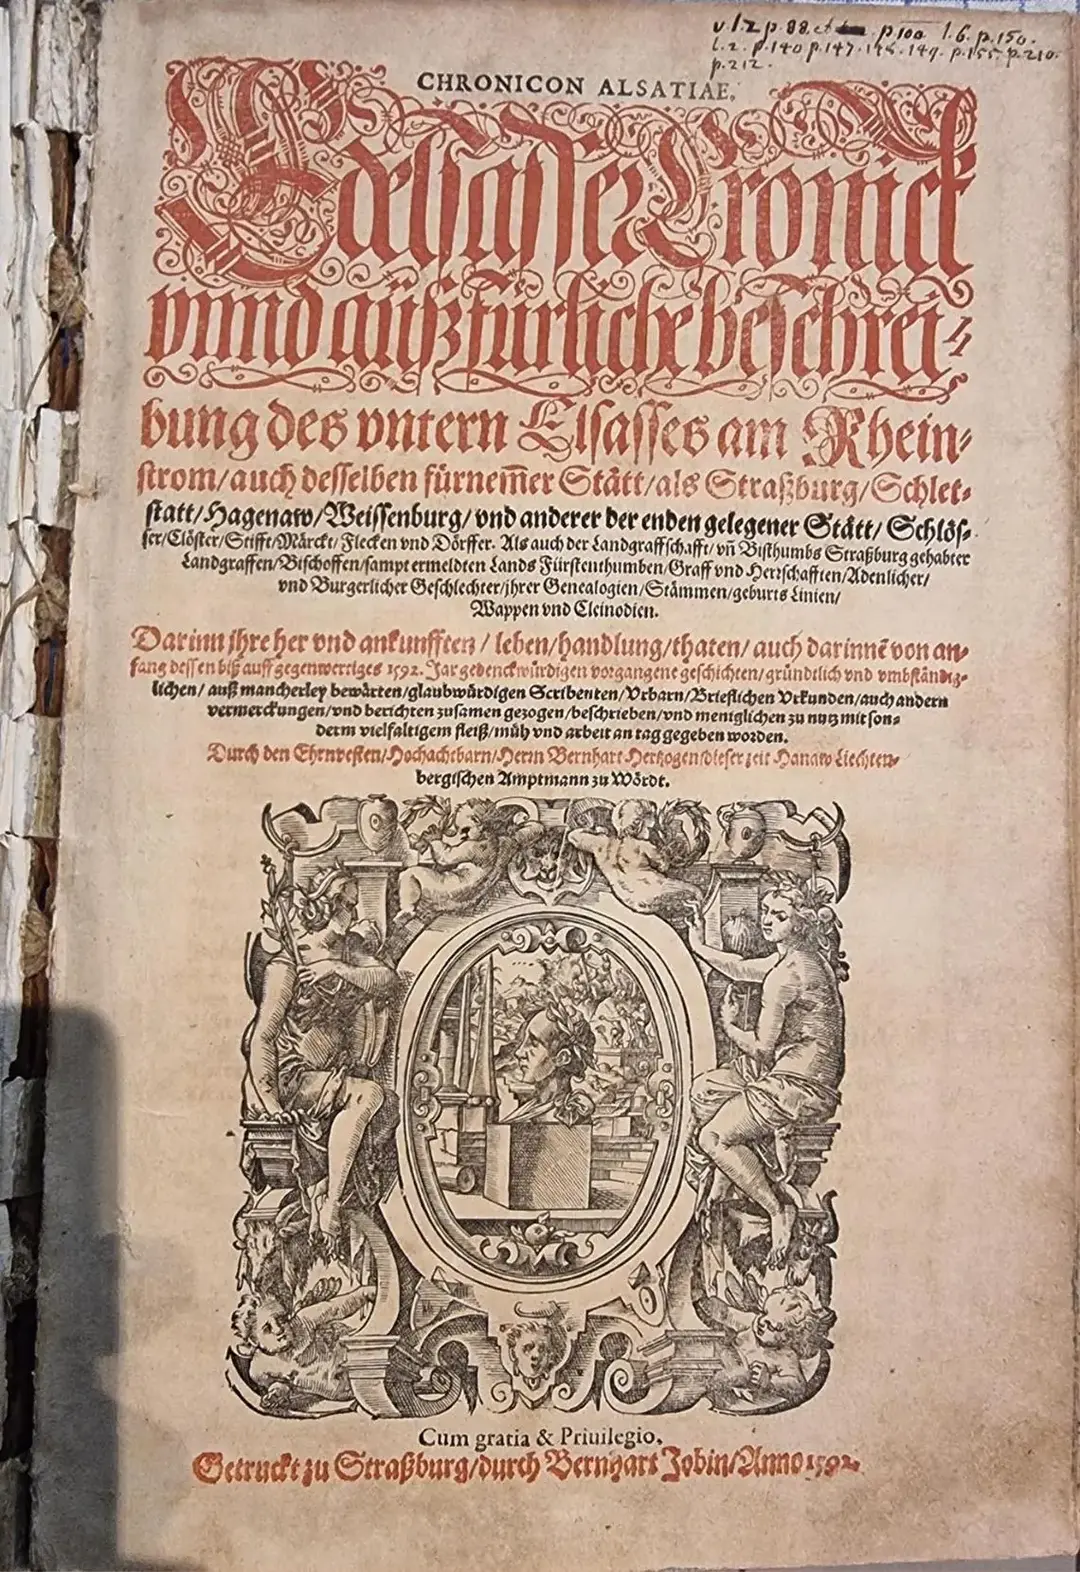 v l.2 p. 88. et p. 100 l.6. p. 150.
l. 2. p. 140 p. 147. 148. 149. p. 155. p. 210.
p. 212.
CHRONICON ALSATIAE.
Edelsasser Cronick
vnnd außfürliche beschrei-
bung des vntern Elsasses am Rhein-
strom/auch desselben fürnem̃er Stätt/als Straßburg/Schlet-
statt/Hagenaw/Weissenburg/vnd anderer der enden gelegener Stätt/Schlös-
ser/Clöster/Stifft/Märckt/Flecken vnd Dörffer. Als auch der Landgraffschafft/vñ Bisthumbs Straßburg gehabter
Landgraffen/Bischoffen/sampt ermeldten Lands Fürstenthumben/Graff vnd Herrschafften/Adenlicher/
vnd Burgerlicher Geschlechter/jhrer Genealogien/Stämmen/geburts Linien/
Wappen vnd Cleinodien.
Darinn jhre her vnd ankunfften/leben/handlung/thaten/auch darinnē von an-
fang dessen biß auff gegenwertiges 1592. Jar gedenckwürdigen vorgangene geschichten/gründtlich vnd vmbständig-
lichen/auß mancherley bewärten/glaubwürdigen Scribenten/Vrbarn/Brieflichen Vrkunden/auch andern
vermerckungen/vnd berichten zusamen gezogen/beschrieben/vnd meniglichen zu nutz mit son-
derm vielfaltigem fleiß/müh vnd arbeit an tag gegeben worden.
Durch den Ehrnvesten/Hochachtbarn/Herrn Bernhart Hertzogen/dieser zeit Hanaw Liechten-
bergischen Amptmann zu Wördt.
Cum gratia & Priuilegio.
Getruckt zu Straßburg/durch Bernhart Jobin/Anno 1592.